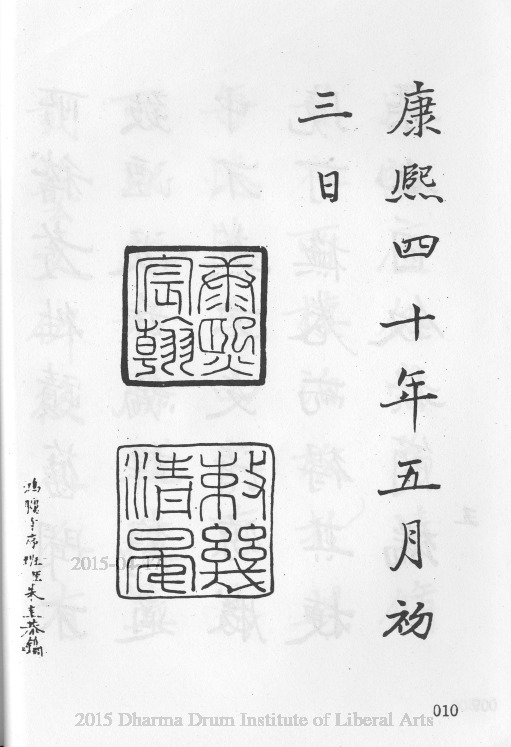 康熙四十年五月初
三日
康熙
宸翰
敕幾
清晏
鴻臚寺序班臣朱圭恭鐫
2015-04-17
010
2015 Dharma Drum Institute of Liberal Arts